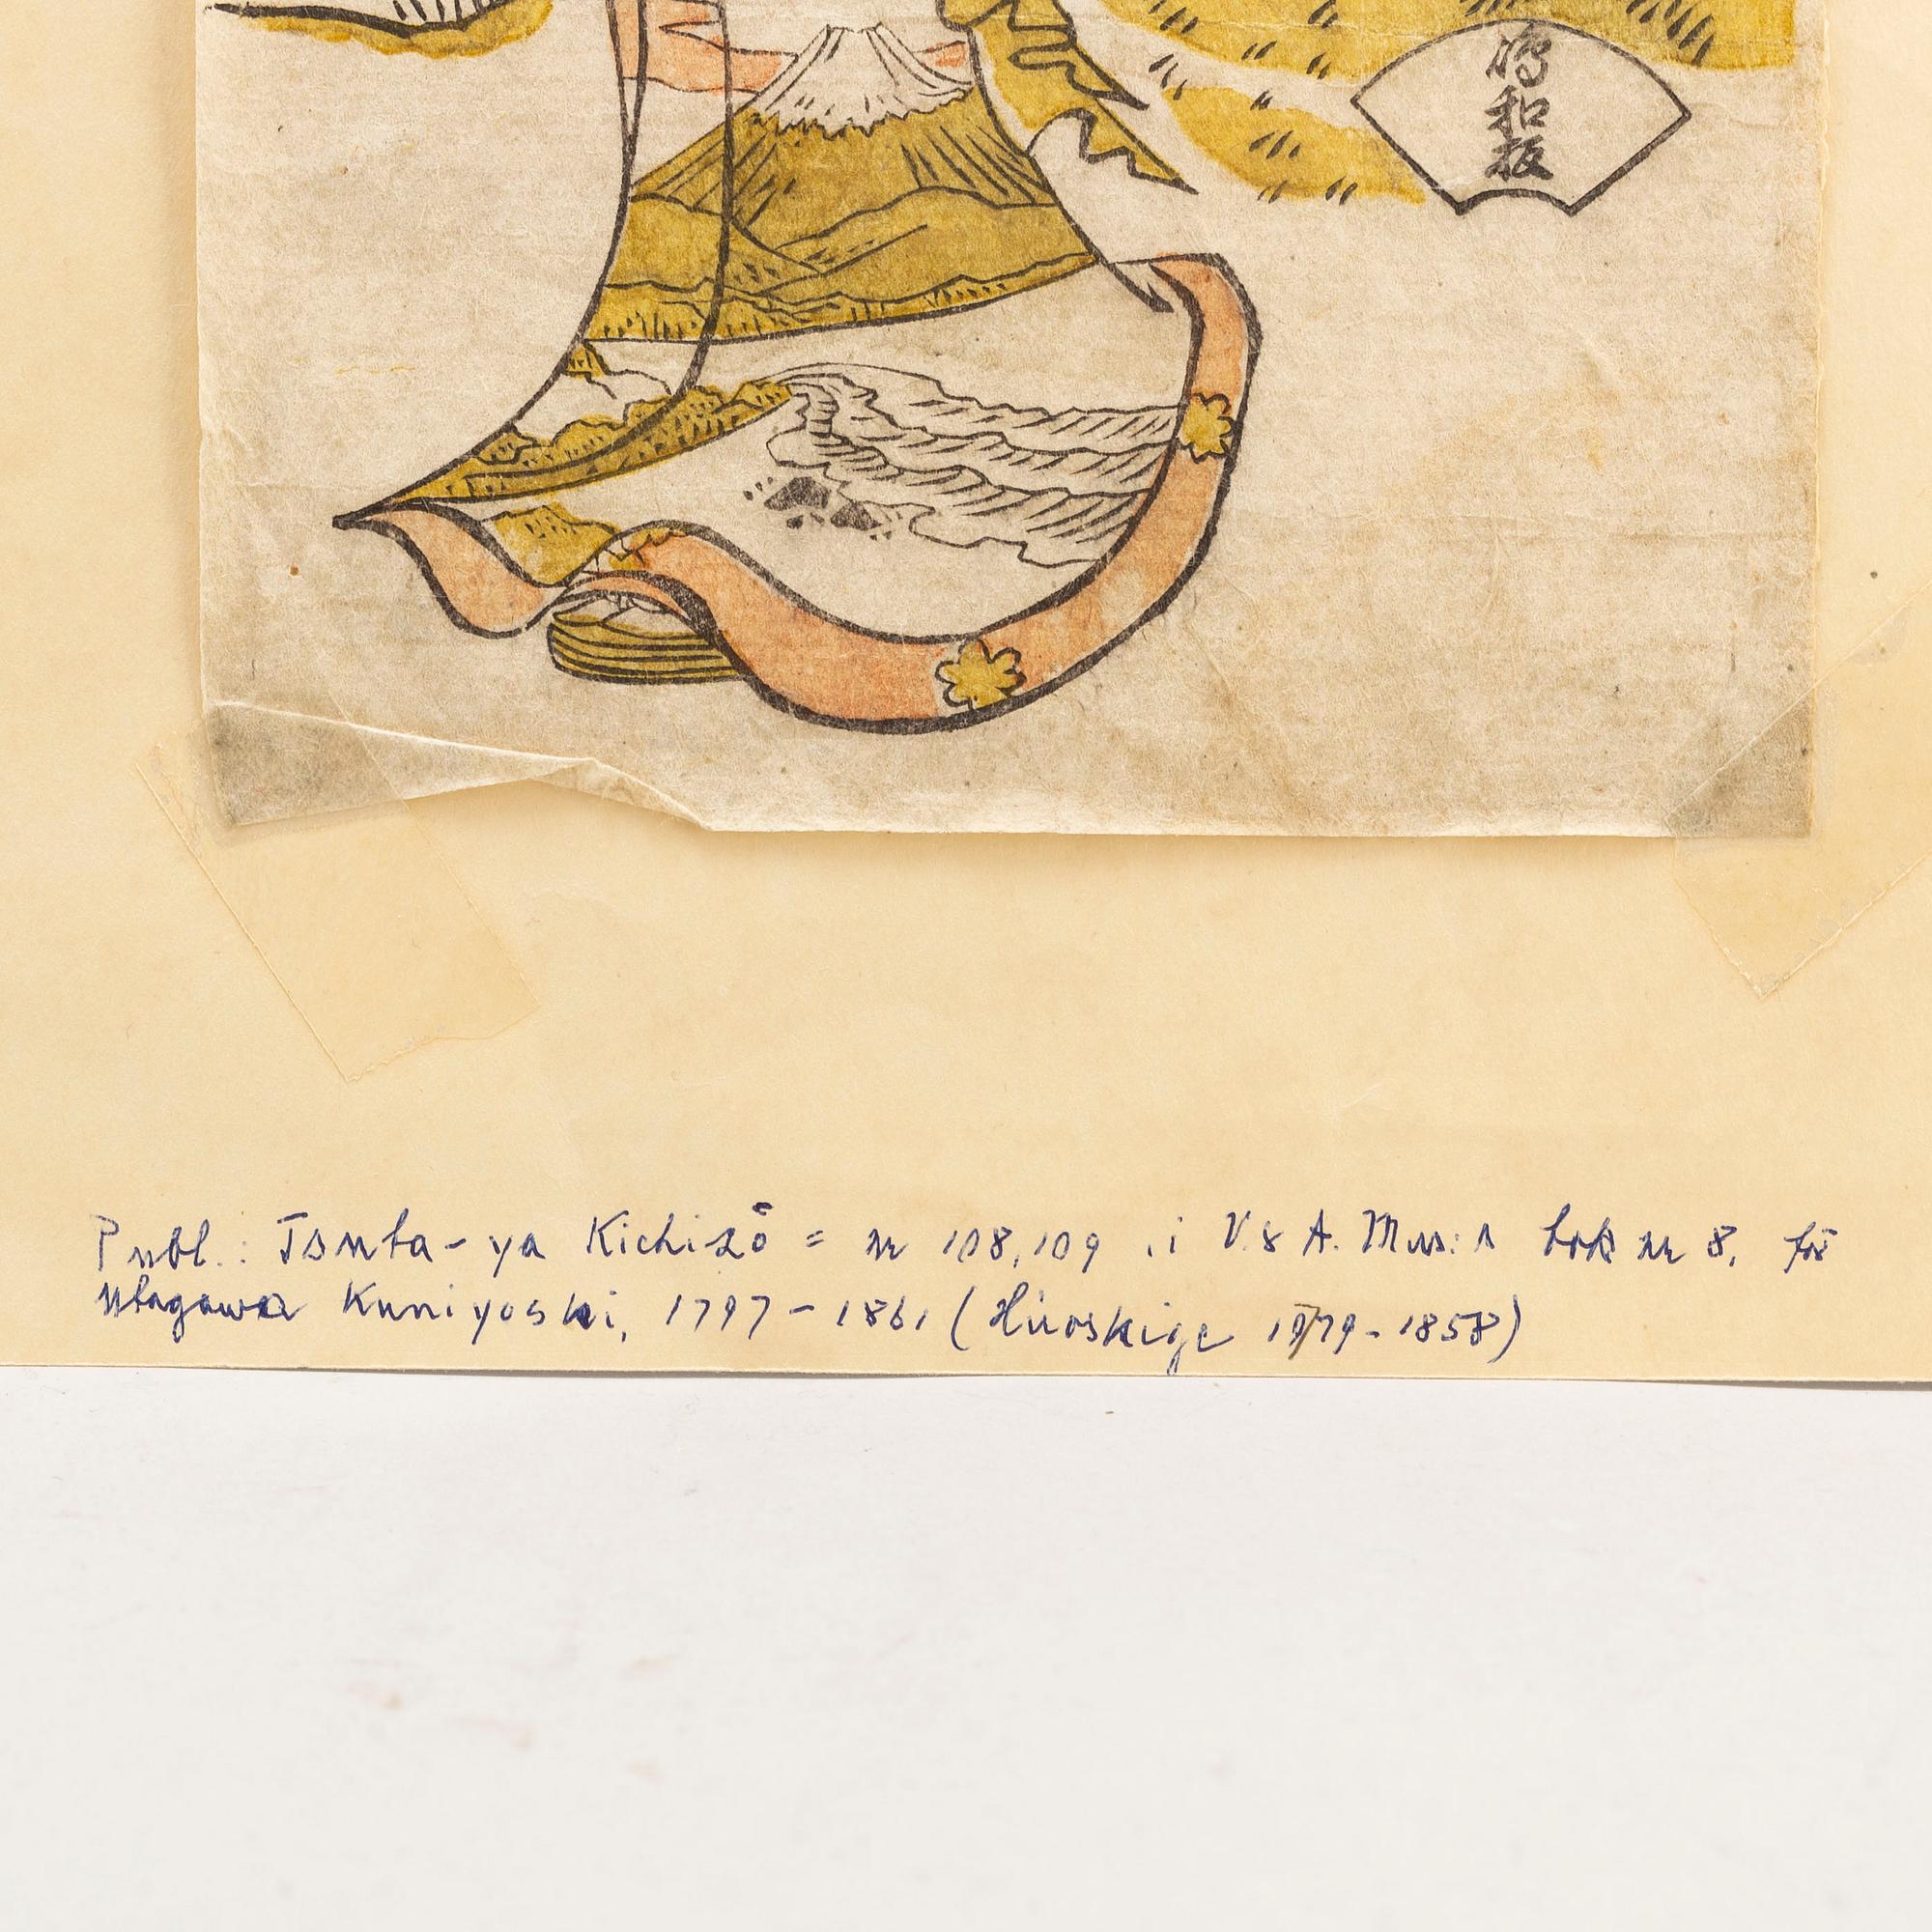 和
板
Publ.: Tsuta-ya Kichizō = nr 108,109 i V & A. Mus:s bok nr 8, för
Utagawa Kuniyoshi, 1797 - 1861 (Hiroshige - 1858)